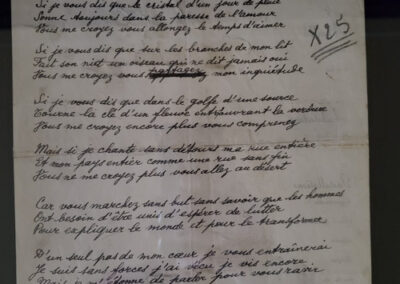 Si je vous dis que le cristal d'un jour de pluie
Sonne toujours dans la paresse de l'amour
Vous me croyez vous allongez le temps d'aimer
X25
Si je vous dis que sur les branches de mon lit
Fait son nid un oiseau qui ne dit jamais oui
Vous me croyez vous partagez mon inquiétude
Si je vous dis que dans le golfe d'une source
Tourne la clé d'un fleuve entr'ouvrant la verdure
Vous me croyez encore plus vous comprenez
Mais si je chante sans détours ma rue entière
Et mon pays entier comme une rue sans fin
Vous ne me croyez plus vous allez au désert
Car vous marchez sans but sans savoir que les hommes
Ont besoin d'être unis d'espérer de lutter
Pour expliquer le monde et pour le transformer
D'un seul pas de mon cœur je vous entraînerai
Je suis sans forces j'ai vécu je vis encore
Mais je m'étonne de parler pour vous ravir